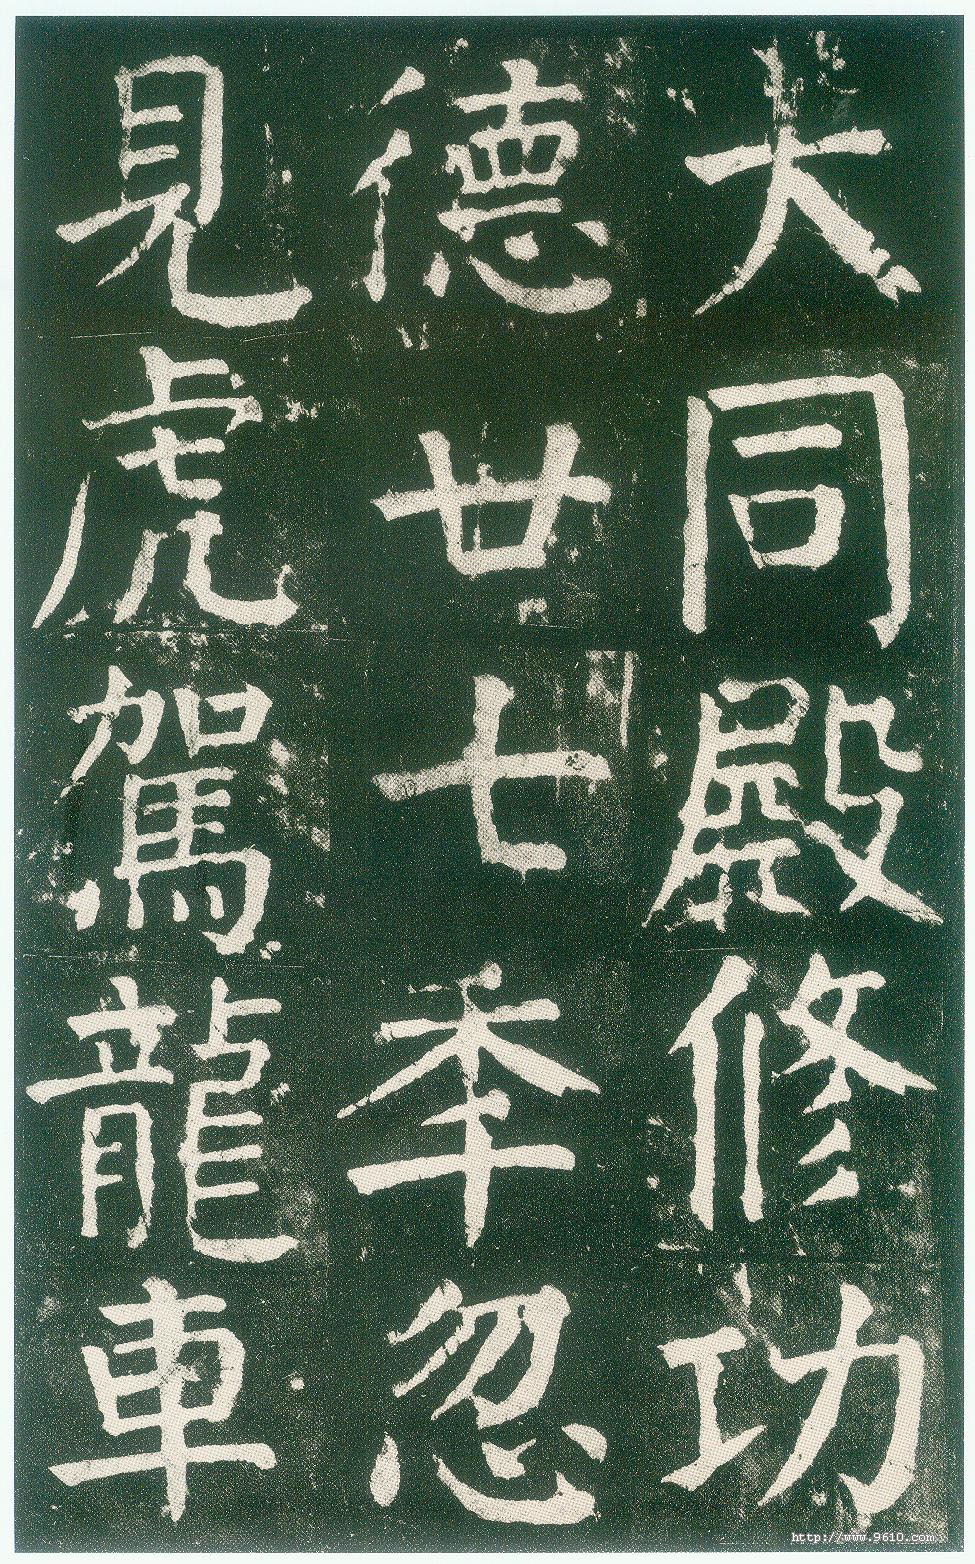 大同殿修功
德廿七季忽
見虎駕龍車
http://www.9610.com